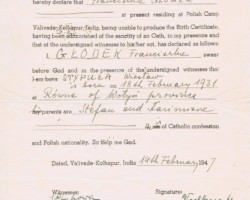 hereby declare that Franciszka Głodek
at present residing at Polish Camp
Valivade-Kolhapur, India, being unable to produce the Birth Certificate,
having been admonished of the sanctity of an Oath, in my presence and
that of the undersigned witnesses to his/her act, has declared as follows:
I, GŁODEK Franciszka
before God and in the presence of the undersigned witnesses
born on 18th February 1931
at Równe of Wołyń province
My parents are Stefan and
of Catholic confession
and Polish nationality. So help me God.
Dated, Valivade-Kolhapur, India 14th February 1947
Witnesses: Signature: